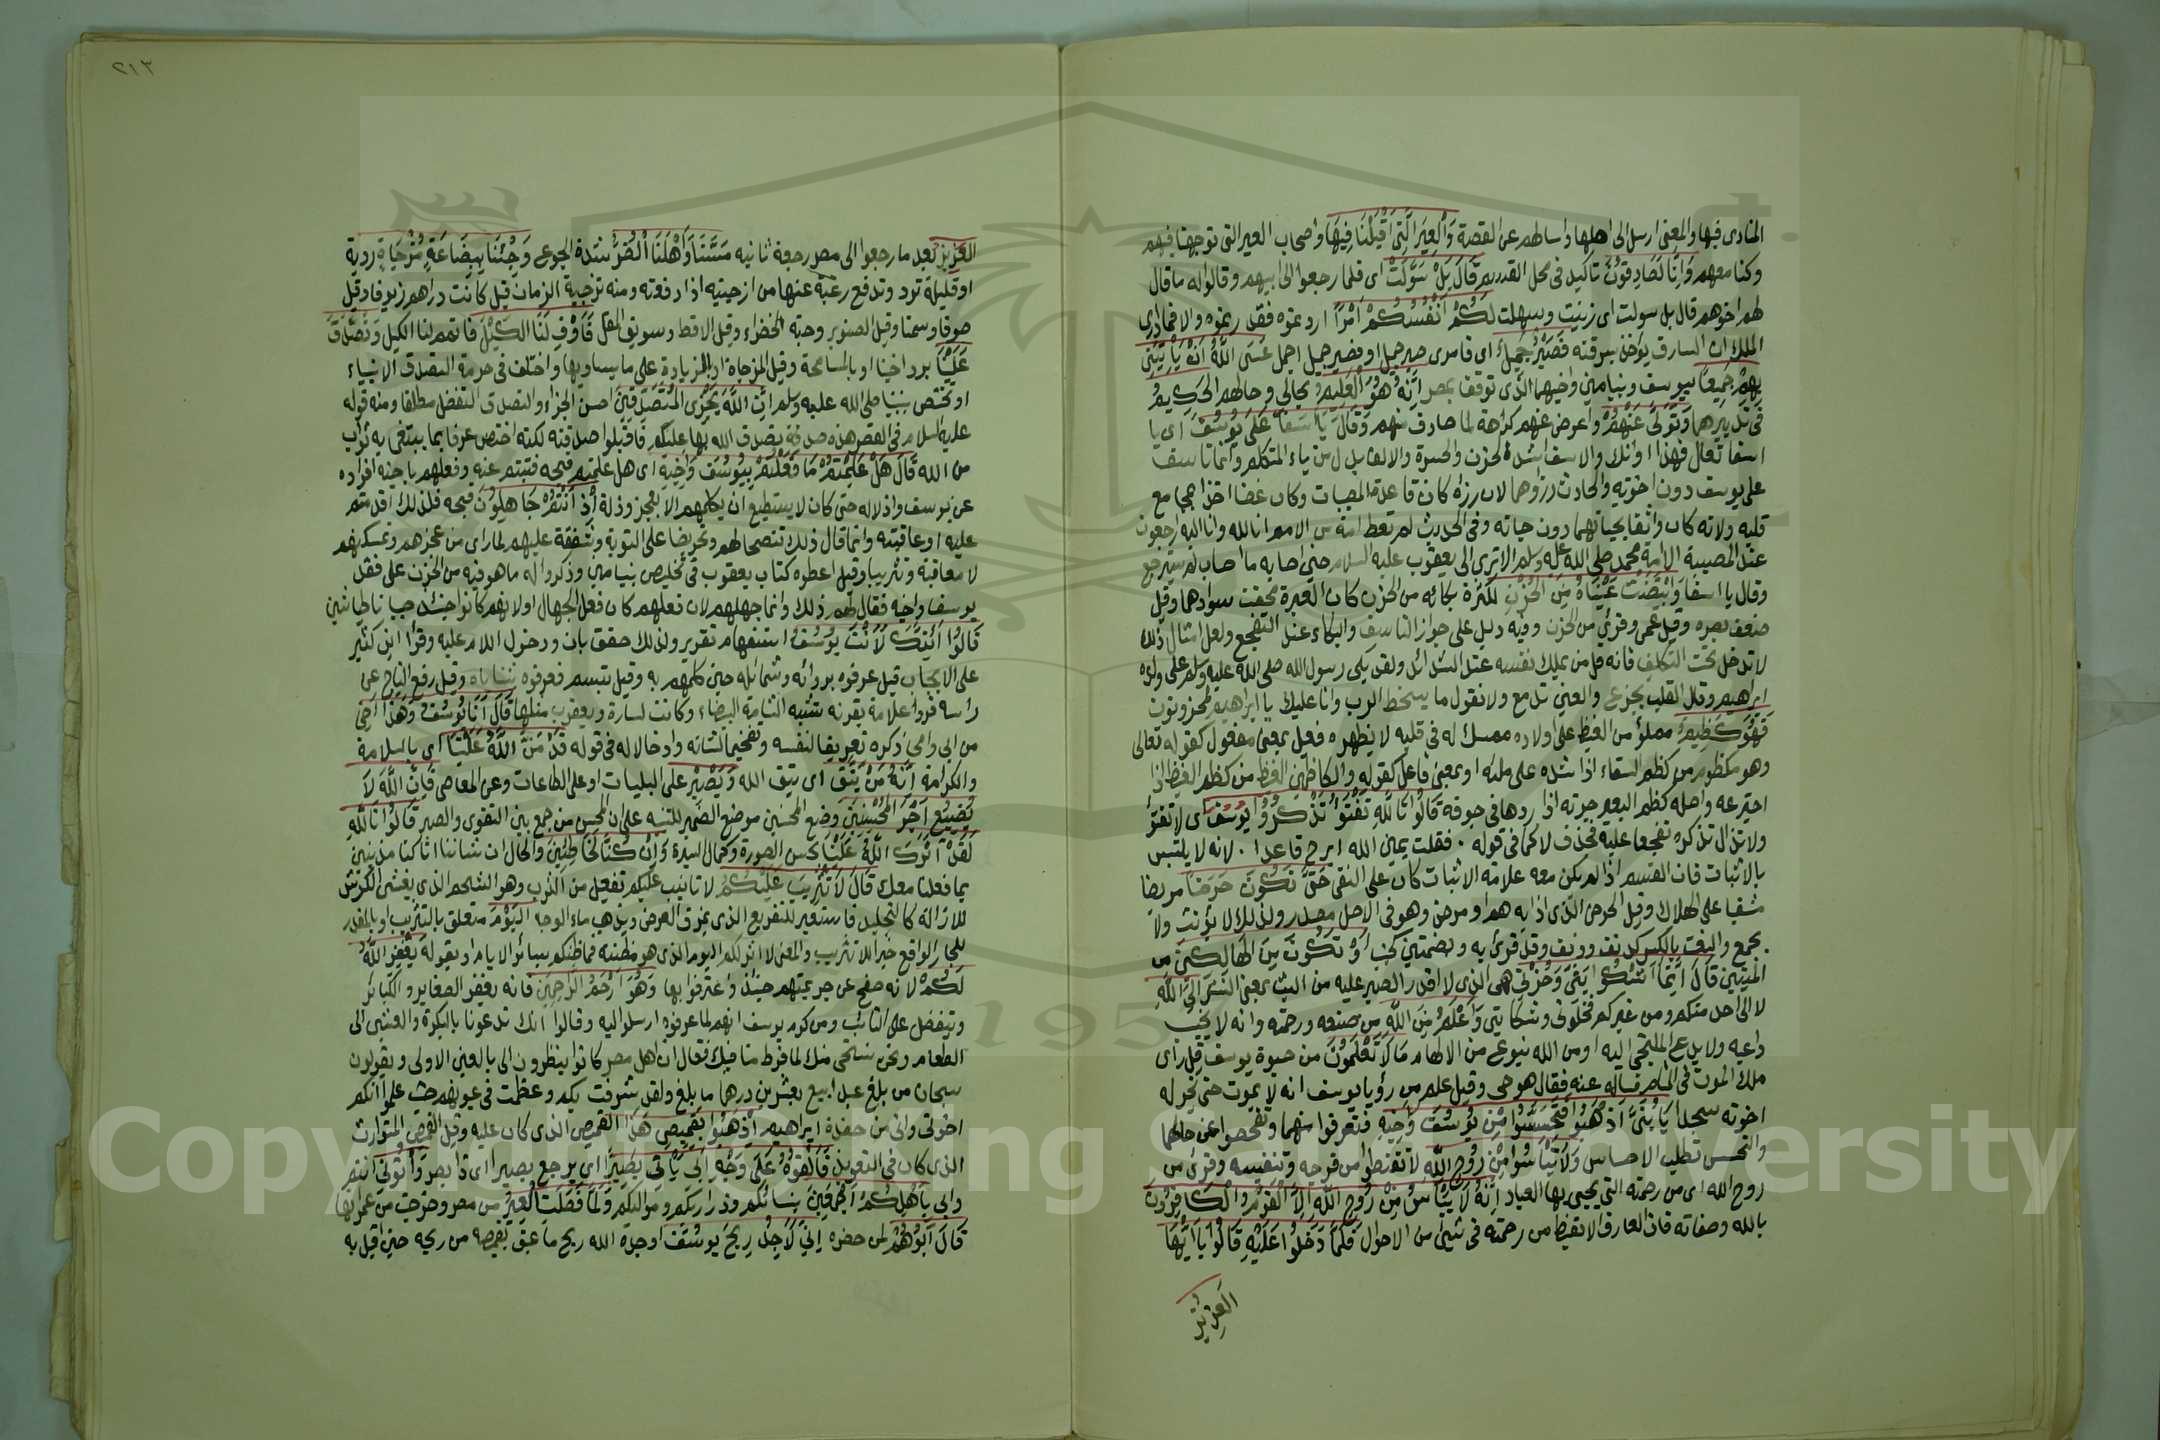 المنادى فيها والمعنى ارسل الى اهلها واسألهم عن القصة وَالْعِيرَ الَّتِي أَقْبَلْنَا فِيهَا واصحاب العير التى توجهنا فيهم
وكنا معهم وَإِنَّا لَصَادِقُونَ تاكيد فى محل القسم قَالَ بَلْ سَوَّلَتْ اى فلما رجعوا الى ابيهم وقالوا له ما قال
لهم اخوهم قال بل سولت اى زينت وسهلت لَكُمْ أَنْفُسُكُمْ أَمْرًا اردتموه فقدرتموه والا فما ادرى
الملك ان السارق يؤخذ بسرقته فَصَبْرٌ جَمِيلٌ اى فامرى صبر جميل او فصبر جميل اجمل عَسَى اللَّهُ أَنْ يَأْتِيَنِي
بِهِمْ جَمِيعًا بيوسف وبنيامين واخيهما الذى توقف بمصر إِنَّهُ هُوَ الْعَلِيمُ بحالى وحالهم الْحَكِيمُ
فى تدبيرهما وَتَوَلَّى عَنْهُمْ واعرض عنهم كراهة لما صادف منهم وَقَالَ يَا أَسَفَى عَلَى يُوسُفَ اى يا
اسفا تعال فهذا اوانك والاسف اشد الحزن والحسرة والالف بدل من ياء المتكلم وانما تاسف
على يوسف دون اخويه والحادث رزؤهما لان رزأه كان قاعدة المصيبات وكان غضا اخذا بمجامع
قلبه ولانه كان واثقا بحياتهما دون حياته وفى الحديث لم تعط امة من الامم انا لله وانا اليه راجعون
عند المصيبة الا امة محمد صلى الله عليه وسلم الا ترى الى يعقوب عليه السلام حين اصابه ما اصاب لم يسترجع
وقال يا اسفا وَابْيَضَّتْ عَيْنَاهُ مِنَ الْحُزْنِ لكثرة بكائه من الحزن كان العبرة محقت سوادهما وقيل
ضعف بصره وقيل عمى وقرئ من الحزن وفيه دليل على جواز التاسف والبكاء عند التفجع ولعل امثال ذلك
لا تدخل تحت التكليف فانه قل من يملك نفسه عند الشدائد ولقد بكى رسول الله صلى الله عليه وسلم على ولده
ابراهيم وقال القلب يجزع والعين تدمع ولا نقول ما يسخط الرب وانا عليك يا ابراهيم لمحزونون
فَهُوَ كَظِيمٌ مملوء من الغيظ على اولاده ممسك له فى قلبه لا يظهره فعيل بمعنى مفعول كقوله تعالى
وهو مكظوم من كظم السقاء اذا شده على ملئه او بمعنى فاعل كقوله والكاظمين الغيظ من كظم الغيظ اذا
اجترعه واصله كظم البعير جرته اذا ردها فى جوفه قَالُوا تَاللَّهِ تَفْتَؤُا تَذْكُرُ يُوسُفَ اى لا تفتؤ
ولا تزال تذكره تفجعا عليه فحذف لا كما فى قوله . فقلت يمين الله ابرح قاعدا . لانه لا يلتبس
بالاثبات فان القسم اذا لم يكن معه علامة الاثبات كان على النفى حَتَّى تَكُونَ حَرَضًا مريضا
مشفيا على الهلاك وقيل الحرض الذى اذابه هم او مرض وهو فى الاصل مصدر ولذلك لا يؤنث ولا
يجمع والنعت بالكسر كدنف ودنف وقد قرئ به وبضمتين كجنب أَوْ تَكُونَ مِنَ الْهَالِكِينَ من
الميتين قَالَ إِنَّمَا أَشْكُوا بَثِّي وَحُزْنِي همى الذى لا اقدر الصبر عليه من البث بمعنى النشر إِلَى اللَّهِ
لا الى احد منكم ومن غيركم فخلونى وشكايتى وَأَعْلَمُ مِنَ اللَّهِ من صنعه ورحمته وانه لا يخيب
داعيه ولا يدع الملتجئ اليه او من الله بنوع من الالهام مَا لَا تَعْلَمُونَ من حيوة يوسف قيل راى
ملك الموت فى المنام فساله عنه فقال هو حى وقيل علم من رؤيا يوسف انه لا يموت حتى يخر له
اخوته سجدا يَا بَنِيَّ اذْهَبُوا فَتَحَسَّسُوا مِنْ يُوسُفَ وَأَخِيهِ فتعرفوا منهما وتفحصوا عن حالهما
والتحسس تطلب الاحساس وَلَا تَيْأَسُوا مِنْ رَوْحِ اللَّهِ لا تقنطوا من فرجه وتنفيسه وقرئ من
روح الله اى من رحمته التى يحيى بها العباد إِنَّهُ لَا يَيْأَسُ مِنْ رَوْحِ اللَّهِ إِلَّا الْقَوْمُ الْكَافِرُونَ
بالله وصفاته فان العارف لا يقنط من رحمته فى شئ من الاحوال فَلَمَّا دَخَلُوا عَلَيْهِ قَالُوا يَا أَيُّهَا
الْعَزِيزُ
٢١٣
الْعَزِيزُ بعد ما رجعوا الى مصر رجعة ثانيه مَسَّنَا وَأَهْلَنَا الضُّرُّ شدة الجوع وَجِئْنَا بِبِضَاعَةٍ مُزْجَاةٍ ردية
او قليلة ترد وتدفع رغبة عنها من ازجيته اذا دفعته ومنه تزجية الزمان قيل كانت دراهم زيوفا وقيل
صوفا وسمنا وقيل الصنوبر وحبة الخضراء وقيل الاقط وسويق المقل فَأَوْفِ لَنَا الْكَيْلَ فاتمم لنا الكيل وَتَصَدَّقْ
عَلَيْنَا برد اخينا او بالمسامحة وقبل المزجاة او بالزيادة على ما يساويها واختلف فى حرمة التصدق الانبياء
او تختص بنبينا صلى الله عليه وسلم إِنَّ اللَّهَ يَجْزِي الْمُتَصَدِّقِينَ احسن الجزاء والتصدق التفضل مطلقا ومنه قوله
عليه السلام فى القصر هذه صدقة تصدق الله بها عليكم فاقبلوا صدقته لكنه اختص عرفا بما يبتغى به ثواب
من الله قَالَ هَلْ عَلِمْتُمْ مَا فَعَلْتُمْ بِيُوسُفَ وَأَخِيهِ اى هل علمتم قبحه فتبتم عنه وفعلهم باخيه افراده
عن يوسف واذلاله حتى كان لا يستطيع ان يكلمهم الا بعجز وذلة إِذْ أَنْتُمْ جَاهِلُونَ قبحه فلذلك اقدمتم
عليه او عاقبته وانما قال ذلك تنصحا لهم وتحريضا على التوبة وشفقة عليهم لما راى من عجزهم وتمسكنهم
لا معاتبة وتثريبا وقيل اعطوه كتاب يعقوب فى تخليص بنيامين وذكروا له ما هو فيه من الحزن على فقد
يوسف واخيه فقال لهم ذلك وانما جهلهم لان فعلهم كان فعل الجهال او لانهم كانوا حينئذ صبيانا طياشين
قَالُوا أَئِنَّكَ لَأَنْتَ يُوسُفُ استفهام تقرير ولذلك حقق بان ودخول اللام عليه وقرا ابن كثير
على الايجاب قيل عرفوه بروائه وشمائله حين كلمهم به وقيل تبسم فعرفوه بثناياه وقيل رفع التاج عن
راسه فراوا علامة بقرنه تشبه الشامة البيضاء وكانت لسارة ويعقوب مثلها قَالَ أَنَا يُوسُفُ وَهَذَا أَخِي
من ابى وامى ذكره تعريفا لنفسه وتفخيما لشانه وادخالا له فى قوله قَدْ مَنَّ اللَّهُ عَلَيْنَا اى بالسلامة
والكرامة إِنَّهُ مَنْ يَتَّقِ اى يتق الله وَيَصْبِرْ على البليات او على الطاعات وعن المعاصى فَإِنَّ اللَّهَ لَا
يُضِيعُ أَجْرَ الْمُحْسِنِينَ وضع المحسنين موضع الضمير للتنبيه على ان المحسن من جمع بين التقوى والصبر قَالُوا تَاللَّهِ
لَقَدْ آثَرَكَ اللَّهُ عَلَيْنَا بحسن الصورة وكمال السيرة وَإِنْ كُنَّا لَخَاطِئِينَ والحال ان شاننا انا كنا مذنبين
بما فعلنا معك قَالَ لَا تَثْرِيبَ عَلَيْكُمُ لا تانيب عليكم تفعيل من الثرب وهو الشحم الذى يغشى الكرش
للازالة كالتجليد فاستعير للتقريع الذى يمزق العرض ويذهب ماء الوجه الْيَوْمَ متعلق بالتثريب او بالمقدر
للجار الواقع خبرا للا تثريب والمعنى لا اثربكم اليوم الذى هو مظنته فما ظنكم بسائر الايام او بقوله يَغْفِرُ اللَّهُ
لَكُمْ لانه صفح عن جريمتهم حينئذ واعترفوا بها وَهُوَ أَرْحَمُ الرَّاحِمِينَ فانه يغفر الصغاير والكبائر
ويتفضل على التائب ومن كرم يوسف انهم لما عرفوه ارسلوا اليه وقالوا انك تدعونا بالبكرة والعشى الى
الطعام ونحن نستحى منك لما فرط منا فيك فقال ان اهل مصر كانوا ينظرون الى بالعين الاولى ويقولون
سبحان من بلغ عبدا بيع بعشرين درهما ما بلغ ولقد شرفت بكم وعظمت فى عيونهم حيث علموا انكم
اخوتى وانى من حفدة ابراهيم اذْهَبُوا بِقَمِيصِي هَذَا القميص الذى كان عليه وقيل القميص المتوارث
الذى كان فى التعويذ فَأَلْقُوهُ عَلَى وَجْهِ أَبِي يَأْتِ بَصِيرًا اى يرجع بصيرا اى ذا بصر وَأْتُونِي انتم
وابى بِأَهْلِكُمْ أَجْمَعِينَ بنسائكم وذراريكم ومواليكم وَلَمَّا فَصَلَتِ الْعِيرُ من مصر وخرجت من عمرانها
قَالَ أَبُوهُمْ لمن حضره إِنِّي لَأَجِدُ رِيحَ يُوسُفَ اوجده الله ريح ما عبق بقميصه من ريحه حين اقبل به
Copyright © King Saud University
1957